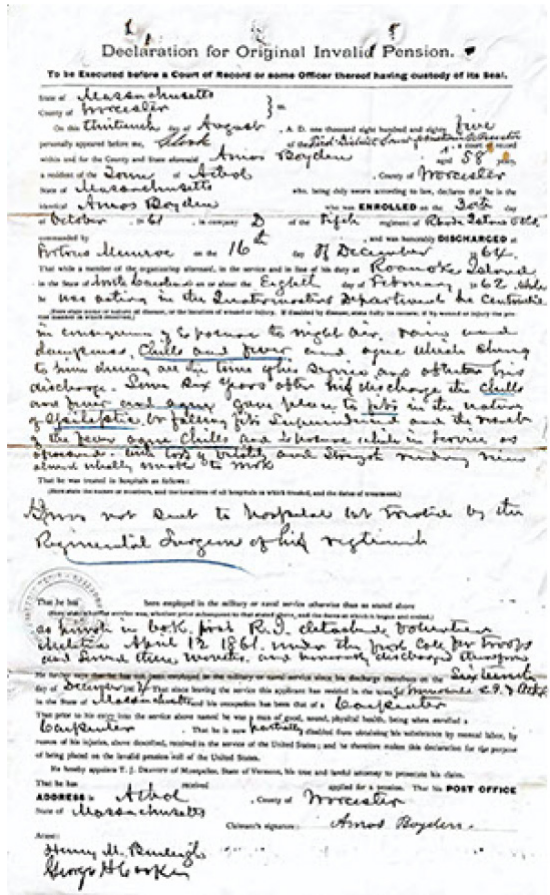 Declaration for Original Invalid Pension.
To be Executed before a Court of Record or some Officer thereof having custody of its Seal.
State of Massachusetts
County of Worcester
On this thirteenth day of August, A. D. one thousand eight hundred and eighty five
personally appeared before me, Clerk of the
within and for the County and State aforesaid Amos Boyden aged 58 years,
a resident of the Town of Athol, County of Worcester
State of Massachusetts who, being duly sworn according to law, declares that he is the
identical Amos Boyden who was ENROLLED on the 30th day
of October, 1861, in company D of the Fifth regiment of Rhode Island Vols.
commanded by, and was honorably DISCHARGED at
Fortress Monroe on the 16th day of December 1864
That while a member of the organization aforesaid, in the service and in line of his duty at Roanoke Island
in the State of North Carolina on or about the Eighth day of February, 1862, while
he was acting in the Quartermasters Department he contracted
in consequence of Exposure to night air, rains and
dampness, Chills and fever and ague which clung
to him during all the time of his service and after his
discharge. Some six years after his discharge the chills
and fever and ague gave place to fits in the nature
of Epileptic or falling fits and the result
of the fever ague chills and exposure while in service as
aforesaid. with loss of vitality and strength rendering him
almost wholly unable to work
That he was treated in hospitals as follows:
(Here state the names or numbers, and the localities of all hospitals in which treated, and the dates of treatment.)
was not sent to hospital but treated by the
Regimental Surgeon of his regiment
That he has been employed in the military or naval service otherwise than as stated above
as private in R.I. detached volunteer
April 17 1861. under the first call for troops
and served three months, and honorably discharged therefrom
That he has not been employed in the military or naval service since his discharge therefrom on the Sixteenth
day of December, 1864 That since leaving the service this applicant has resided in the town of Providence R.I. & Athol
in the State of Massachusetts and his occupation has been that of a Carpenter
That prior to his entry into the service above named he was a man of good, sound, physical health, being when enrolled a
Carpenter. That he is now partially disabled from obtaining his subsistence by manual labor, by
reason of his injuries, above described, received in the service of the United States; and he therefore makes this declaration for the purpose
of being placed on the invalid pension roll of the United States.
He hereby appoints T. J. of Montpelier, State of Vermont, his true and lawful attorney to prosecute his claim.
That he has received applied for a pension. That his POST OFFICE
ADDRESS is Athol, County of Worcester
State of Massachusetts
Claimant's signature: Amos Boyden.
Attest:
Henry M. Burleigh
George H Cooke